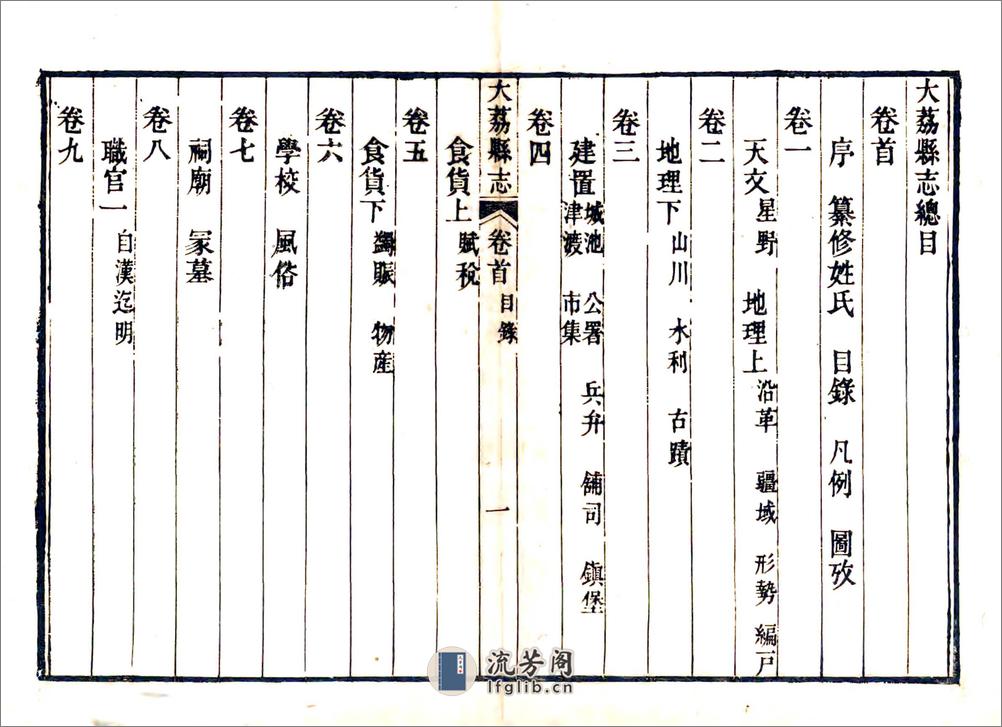 大荔縣志總目
卷首
序　纂修姓氏　目錄　凡例　圖攷
卷一
天文星野　地理上沿革　疆域　形勢　編戸
卷二
地理下山川　水利　古蹟
卷三
建置城池　公署　兵弁　舖司　鎮堡
津渡　市集
卷四
大荔縣志　卷首　目錄　一
食貨上賦稅
卷五
食貨下蠲賑　物産
卷六
學校　風俗
卷七
祠廟　冢墓
卷八
職官一自漢迄明
卷九
流芳阁
lfglib.cn